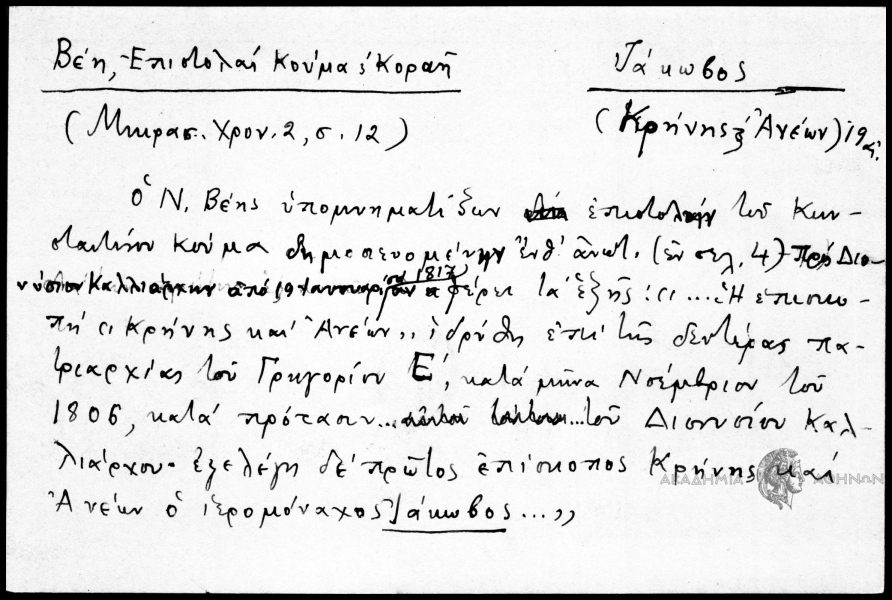 Βέη, Ἐπιστολαί Κούμα & Κοραῆ
Ἰάκωβος
(Μικρασ. Χρον. 2, σ. 12)
(Κρήνης & Ἀνέων) 19 αἰ.
Ὁ Ν. Βέης ὑπομνηματίζων ἐπιστολήν τοῦ Κων-
σταντίνου Κούμα δημοσιευομένην ἔνθ' ἀνωτ. (ἐν σελ. 4) πρός Διο-
νύσιον Καλλιάρχην ἀπό 19 Ἰανουαρίου 1817 ἀναφέρει τά ἑξῆς: «... Ἡ ἐπισκο-
πή «Κρήνης καί Ἀνέων» ἱδρύθη ἐπί τῆς δευτέρας πα-
τριαρχίας τοῦ Γρηγορίου Ε', κατά μῆνα Νοέμβριον τοῦ
1806, κατά πρότασιν... τοῦ Διονυσίου Καλ-
λιάρχου· ἐξελέγη δέ πρῶτος ἐπίσκοπος Κρήνης καί
Ἀνέων ὁ ἱερομόναχος Ἰάκωβος...»
ΑΚΑΔΗΜΙΑ ΑΘΗΝΩΝ